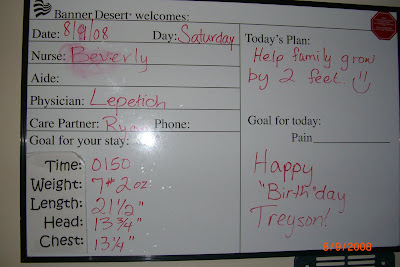 Banner Desert welcomes:
Date: 8/9/08 Day: Saturday
Nurse: Beverly
Aide:
Physician: Lepetich
Care Partner: Ryan Phone:
Goal for your stay:
Time: 0150
Weight: 7# 2oz
Length: 21½"
Head: 13¾"
Chest: 13¼"
Today's Plan:
Help family grow
by 2 feet.
Goal for today:
Pain
Happy
"Birth"day
Treyson!
8/9/2008